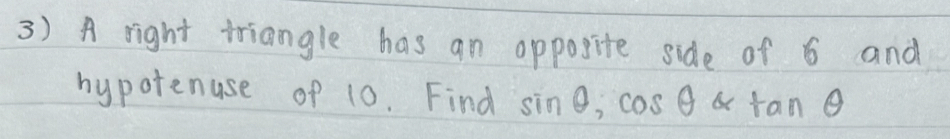 3) A right triangle has an opposite side of 6 and
hypotenuse of 10. Find sin θ, cos θ & tan θ